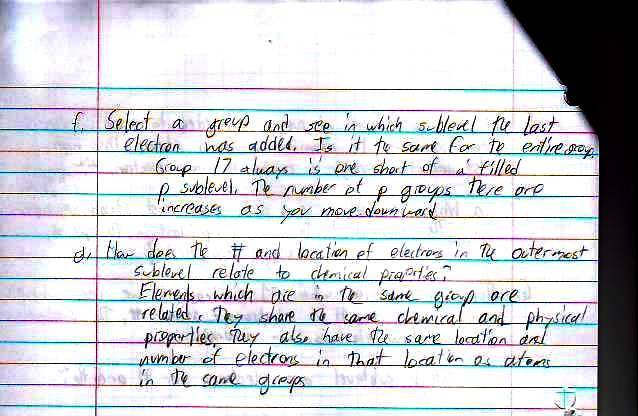 f. Select a group and see in which sublevel the last
electron was added. Is it the same for the entire group.
Group 17 always is one short of a filled
p sublevel. The number of p groups there are
increases as you move downward
d. How does the # and location of electrons in the outermost
sublevel relate to chemical properties?
Elements which are in the same group are
related. They share the same chemical and physical
properties. They also have the same location and
number of electrons in that location as atoms
in the same groups